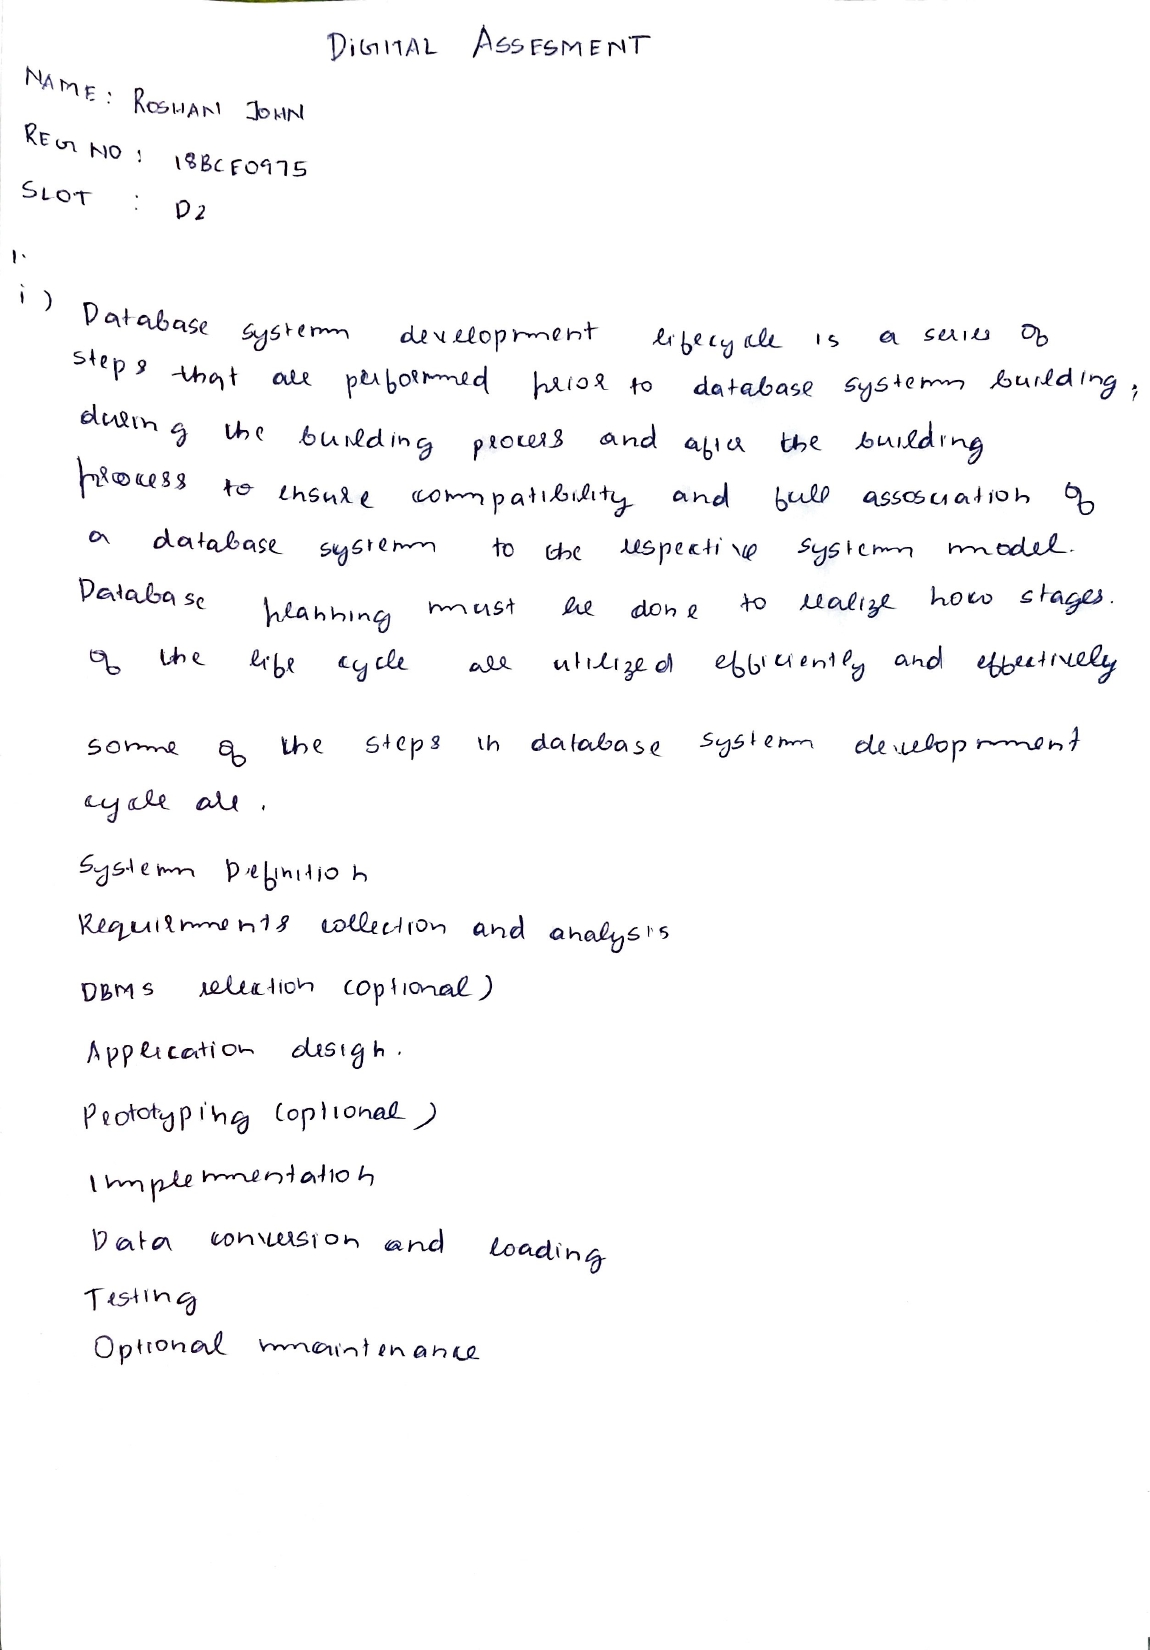 DIGITAL ASSESMENT
NAME: ROSHAN JOHN
REG NO: 18BCE0975
SLOT : D2
1.
i) Database system development lifecycle is a series of
steps that are performed prior to database system building,
during the building process and after the building
process to ensure compatibility and full assosciation of
a database system to the respective system model.
Database planning must be done to realize how stages.
of the life cycle are utilized efficiently and effectively
some of the steps in database system development
cycle are.
System Definition
Requirments collection and analysis
DBMS selection (optional)
Application design.
Prototyping (optional)
Implementation
Data conversion and loading
Testing
Optional maintenance